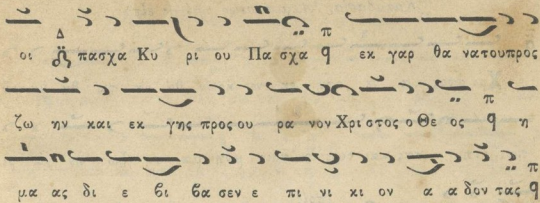 οι πασχα Κυ ρι ου Πα σχα εκ γαρ θα νατουπρος
ζω ην και εκ γης προς ου ρα νον Χρι στος ο Θε ος η
μα ας δι ε βι βα σεν ε πι νι κι ον α α δον τας